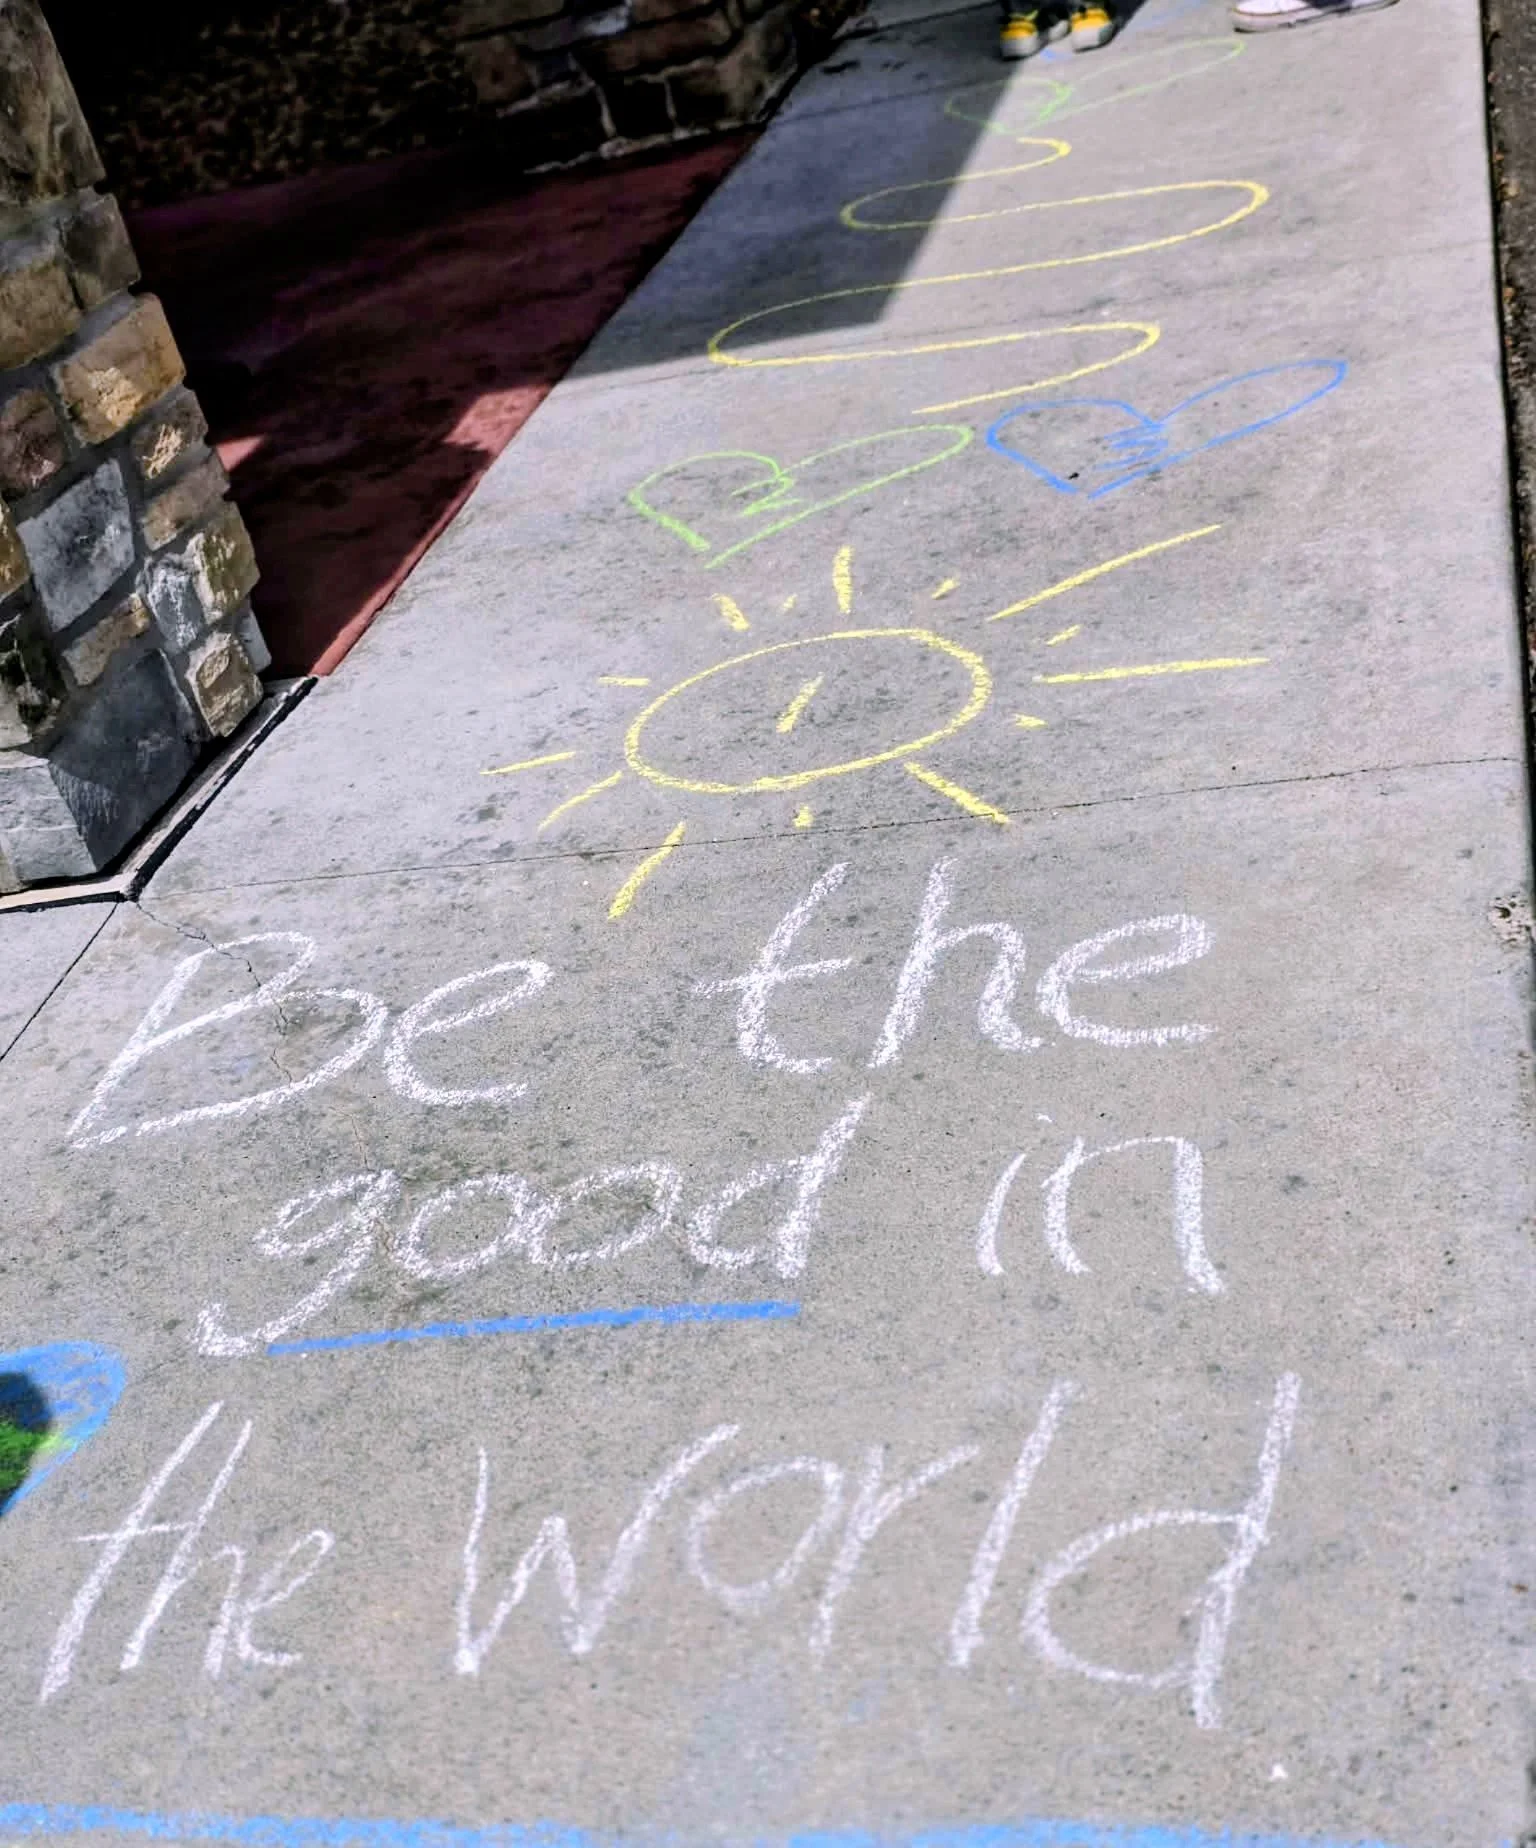 Be the
good in
the world